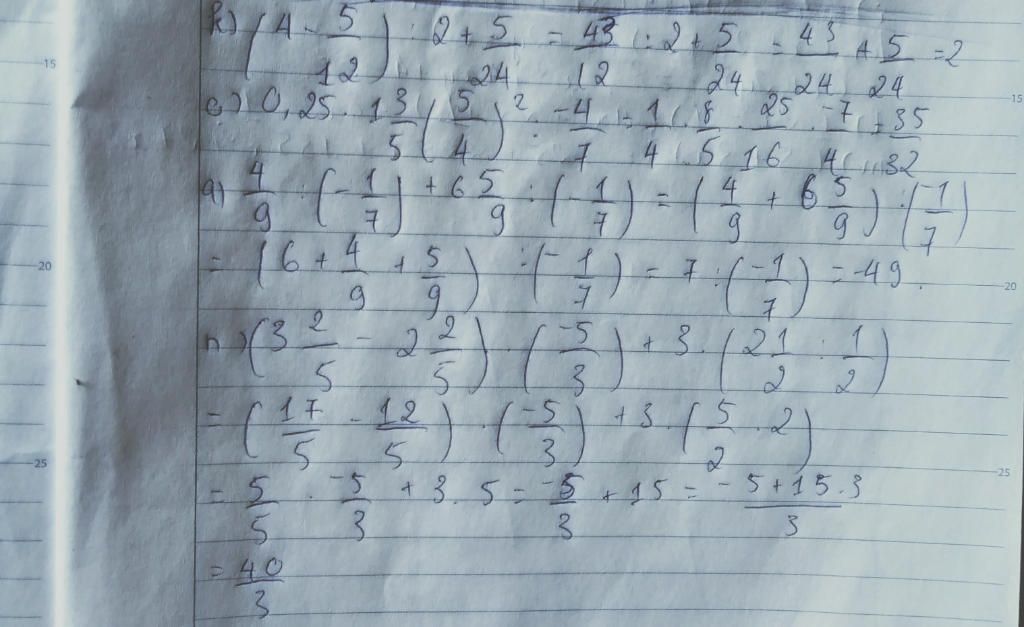 k) (4 - 5/12) : 2 + 5/24 = 43/12 : 2 + 5/24 = 43/24 + 5/24 = 2
e) 0,25 . 1 3/5 (5/4)² : -4/7 = 1/4 . 8/5 . 25/16 . -7/4 = -35/32
g) 4/9 : (-1/7) + 6 5/9 : (-1/7) = (4/9 + 6 5/9) : (-1/7)
= (6 + 4/9 + 5/9) : (-1/7) = 7 : (-1/7) = -49.
n) (3 2/5 - 2 2/5) . (-5/3) + 3 . (2 1/2 : 1/2)
= (17/5 - 12/5) . (-5/3) + 3 . (5/2 . 2)
= 5/5 . -5/3 + 3 . 5 = -5/3 + 15 = -5+15.3/3
= 40/3
15
20
25
15
20
25